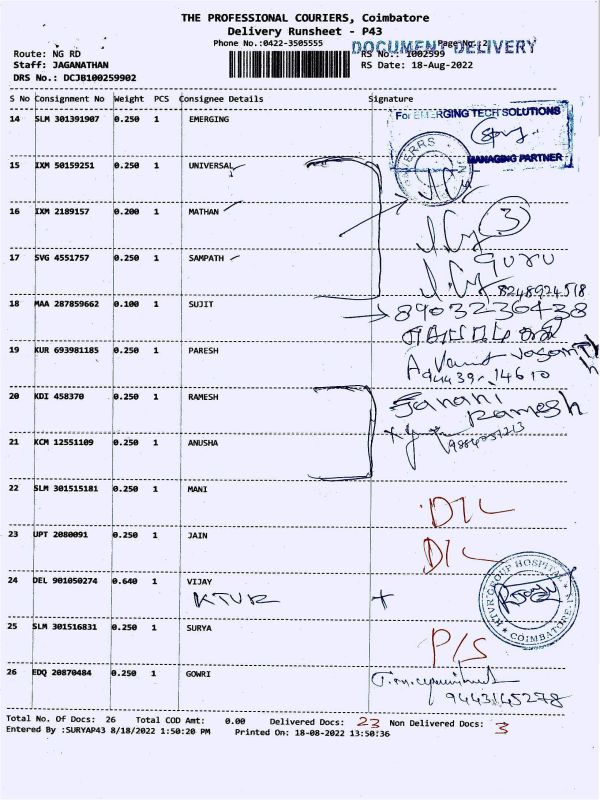 THE PROFESSIONAL COURIERS, Coimbatore
Delivery Runsheet - P43
Phone No.:0422-3505555 Page No.:2
DOCUMENT DELIVERY
Route: NG RD RS No.: 1002599
Staff: JAGANATHAN RS Date: 18-Aug-2022
DRS No.: DCJB100259902
S No Consignment No Weight PCS Consignee Details Signature
14 SLM 301391907 0.250 1 EMERGING
For EMERGING TECH SOLUTIONS
MANAGING PARTNER
15 IXM 50159251 0.250 1 UNIVERSAL
16 IXM 2189157 0.200 1 MATHAN
3
17 SVG 4551757 0.250 1 SAMPATH
guru
8248924518
18 MAA 287859662 0.100 1 SUJIT
8903230438
19 KUR 693981185 0.250 1 PARESH
94439-14610
20 KDI 458370 0.250 1 RAMESH
Janani
Ramesh
21 KCM 12551109 0.250 1 ANUSHA
22 SLM 301515181 0.250 1 MANI
D/L
23 UPT 2080091 0.250 1 JAIN
D/L
24 DEL 901050274 0.640 1 VIJAY
KTVR
KTVR GROUP HOSPITAL
COIMBATORE
25 SLM 301516831 0.250 1 SURYA
P/S
26 EDQ 20870484 0.250 1 GOWRI
9443145278
Total No. Of Docs: 26 Total COD Amt: 0.00 Delivered Docs: 23 Non Delivered Docs: 3
Entered By :SURYAP43 8/18/2022 1:50:20 PM Printed On: 18-08-2022 13:50:36